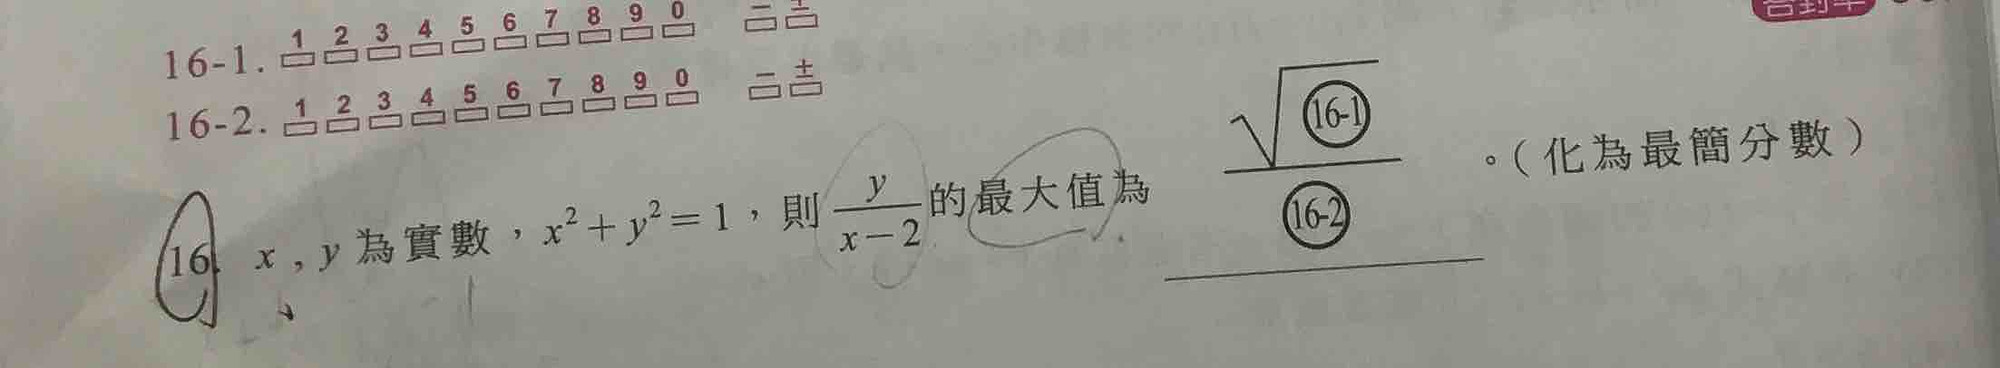 16-1. 1 2 3 4 5 6 7 8 9 0 − ±
16-2. 1 2 3 4 5 6 7 8 9 0 − ±
16. x , y 為實數，x² + y² = 1，則 y/(x − 2) 的最大值為 √(16-1)/(16-2) 。( 化為最簡分數 )